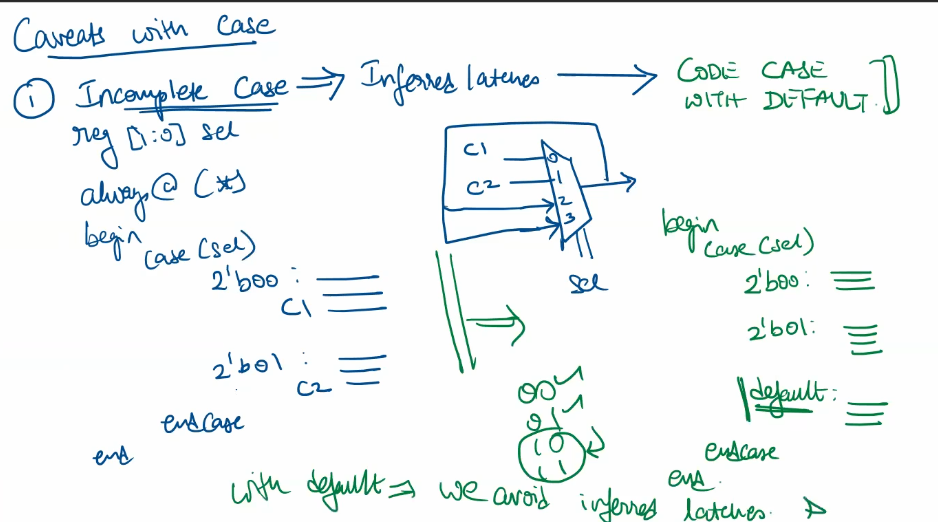 Caveats with Case
① Incomplete Case ⇒ Inferred latches → CODE CASE WITH DEFAULT.
reg [1:0] sel
always @ (*)
begin
case (sel)
2'b00 :
C1
2'b01 :
C2
endcase
end
C1
C2
0
1
2
3
sel
00 ✓
01 ✓
10
11
begin
case (sel)
2'b00:
2'b01:
default:
endcase
end.
with default ⇒ we avoid inferred latches.